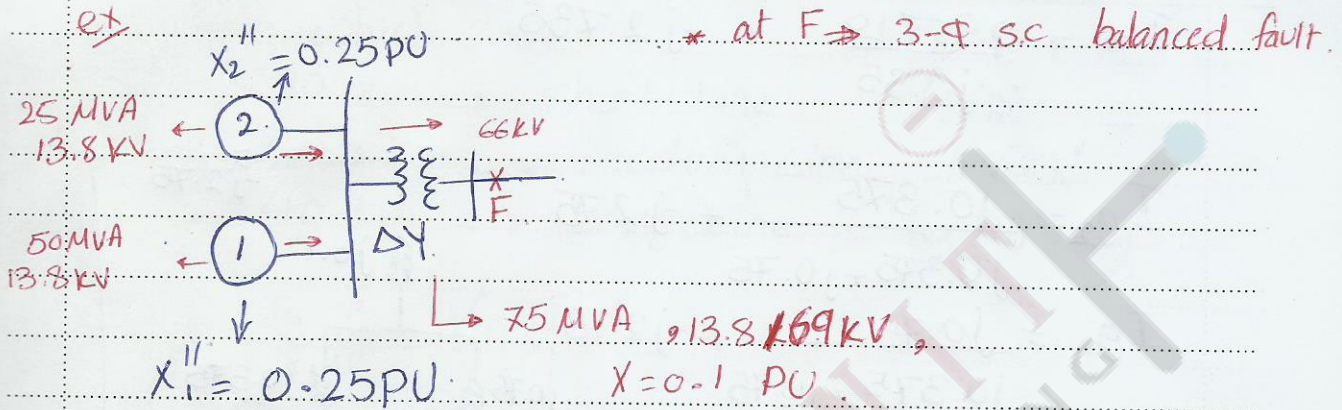 ex
* at F ⇒ 3-Φ s.c balanced fault.
X₂'' = 0.25PU
25 MVA
13.8 KV
2
66KV
X
F
50 MVA
13.8 KV
1
ΔY
75 MVA , 13.8/69KV ,
X₁'' = 0.25PU. X=0.1 PU.